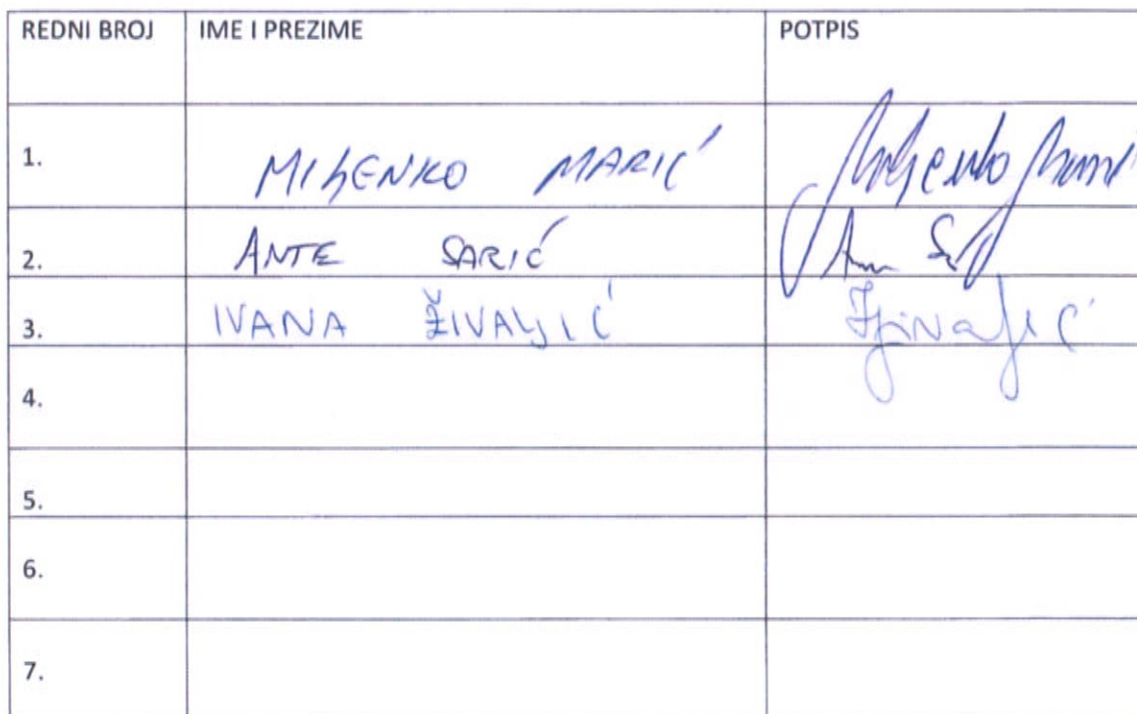 REDNI BROJ IME I PREZIME POTPIS
1. MILJENKO MARIĆ
2. ANTE SARIĆ
3. IVANA ŽIVALJIĆ Živaljić
4.
5.
6.
7.